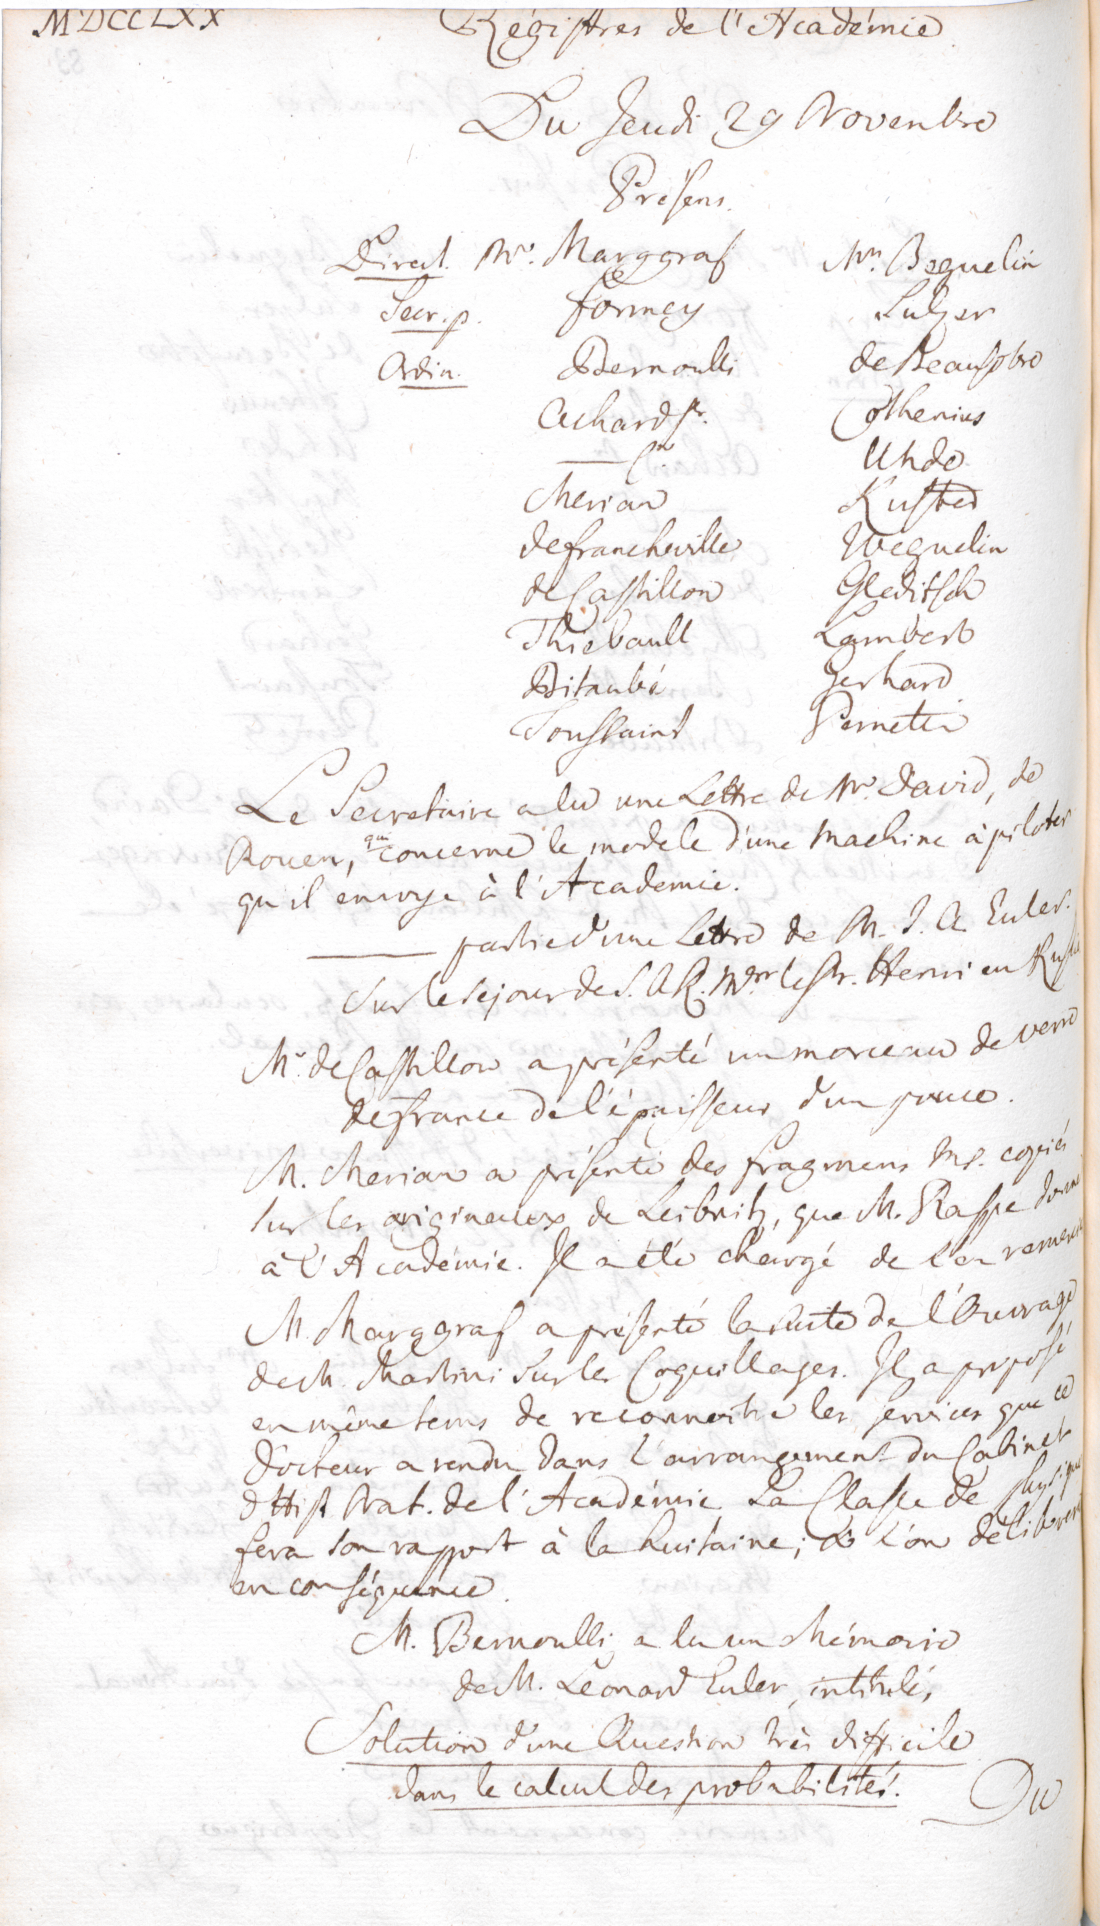 MDCCLXX Régistres de l'Académie
Du Jeudi 29 Novembre
Présens.
Direct. Mrs. Marggraf Mrs. Beguelin
Secr. p. Formey Sulzer
Ordin. Bernoulli de Beausobre
Achard Sr. Cothenius
—— Jr. Uhde
Merian Küster
de Francheville Weguelin
de Castillon Gleditsch
Thiebault Lambert
Bitaubé Gerhard
Toussaint Pernetti
Le Secretaire a lu une Lettre de Mr. David, de
Rouen, qui concerne le modele d'une Machine à piloter
qu'il envoye à l'Academie.
—— partie d'une Lettre de M. J. A. Euler.
sur le sejour de S. A. R. Mgr le Pr. Henri en Russie
Mr. de Castillon a présenté un morceau de verre
de France de l'épaisseur d'un pouce.
M. Merian a présenté des fragmens Ms. copiés
sur les origineaux de Leibnitz, que M. Raspe donne
à l'Académie. Il a été chargé de l'en remerc
M. Marggraf a présenté la suite de l'Ouvrage
de M. Martini sur les Coquillages. Il a proposé
en même tems de reconnoitre les services que ce
Docteur a rendu dans l'arrangement du Cabinet
d'Hist. Nat. de l'Académie La Classe de physique
fera son rapport à la huitaine; & l'on déliberera
en conséquence.
M. Bernoulli a lu un Mémoire
de M. Leonard Euler, intitulé,
Solution d'une Question très difficile
dans le calcul des probabilités.
Du